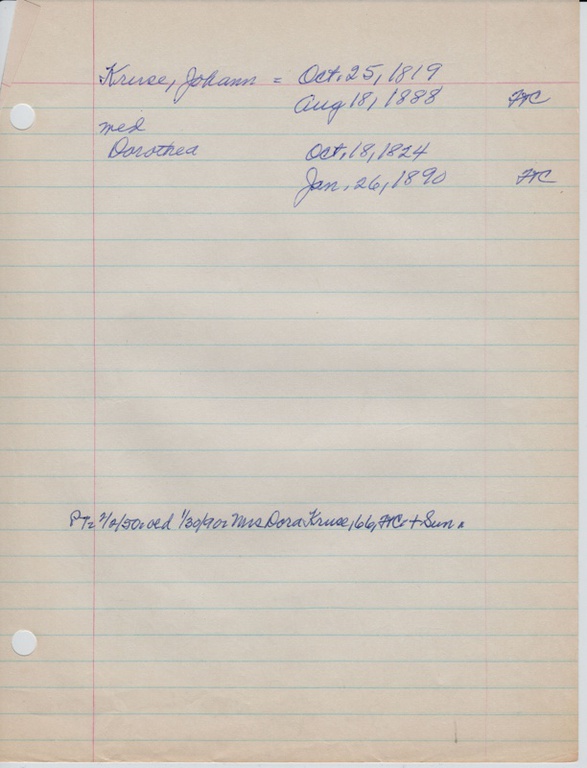 Kruse, Johann = Oct. 25, 1819
Aug 18, 1888 FTC
med
Dorothea Oct. 18, 1824
Jan. 26, 1890 FTC
1/30/90: Mrs Dora Kruse, 66, FTC + Sun.